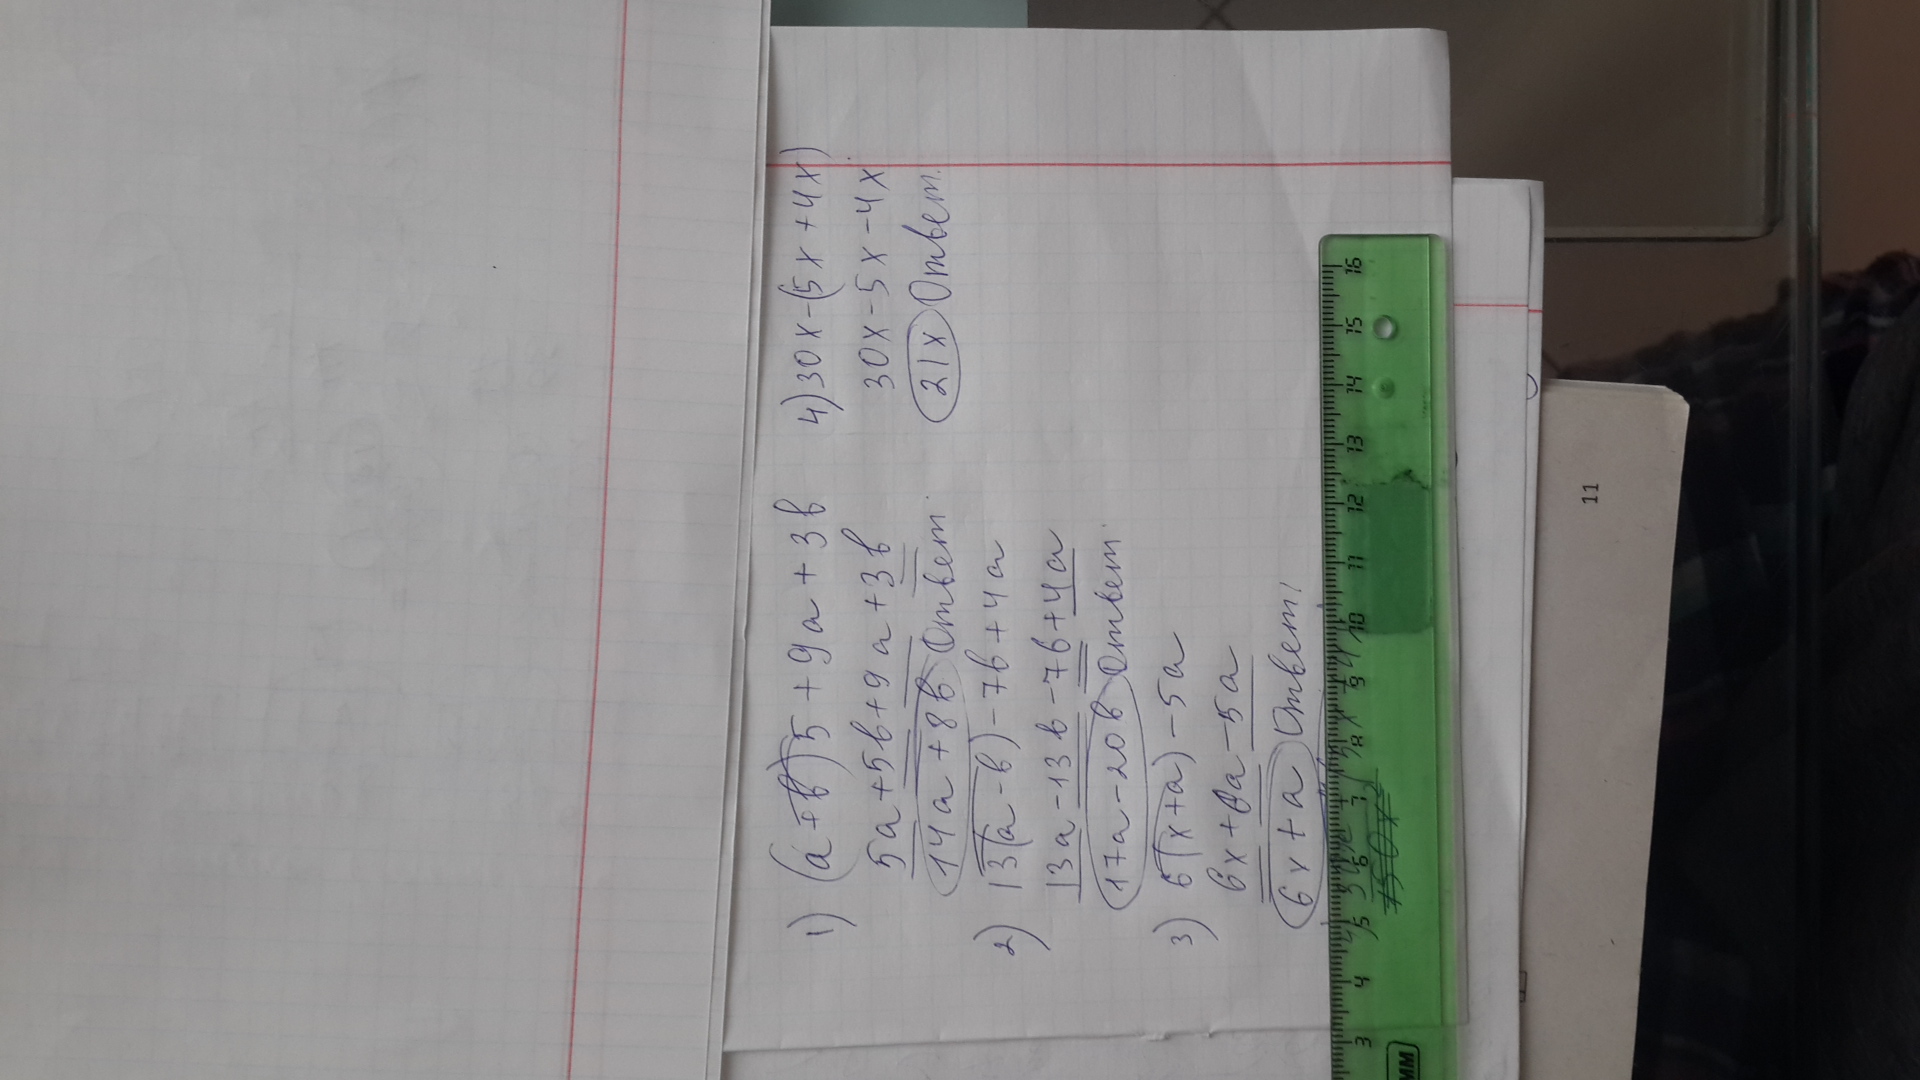 1) (a+b)5+9a+3b
5a+5b+9a+3b
14a+8b Ответ.
2) 13(a-b)-7b+4a
13a-13b-7b+4a
17a-20b Ответ.
3) 6(x+a)-5a
6x+6a-5a
6x+a Ответ!
4) 30x-(5x+4x)
30x-5x-4x
21x Ответ.
3 4 5 6 7 8 9 10 11 12 13 14 15 16
MM
11